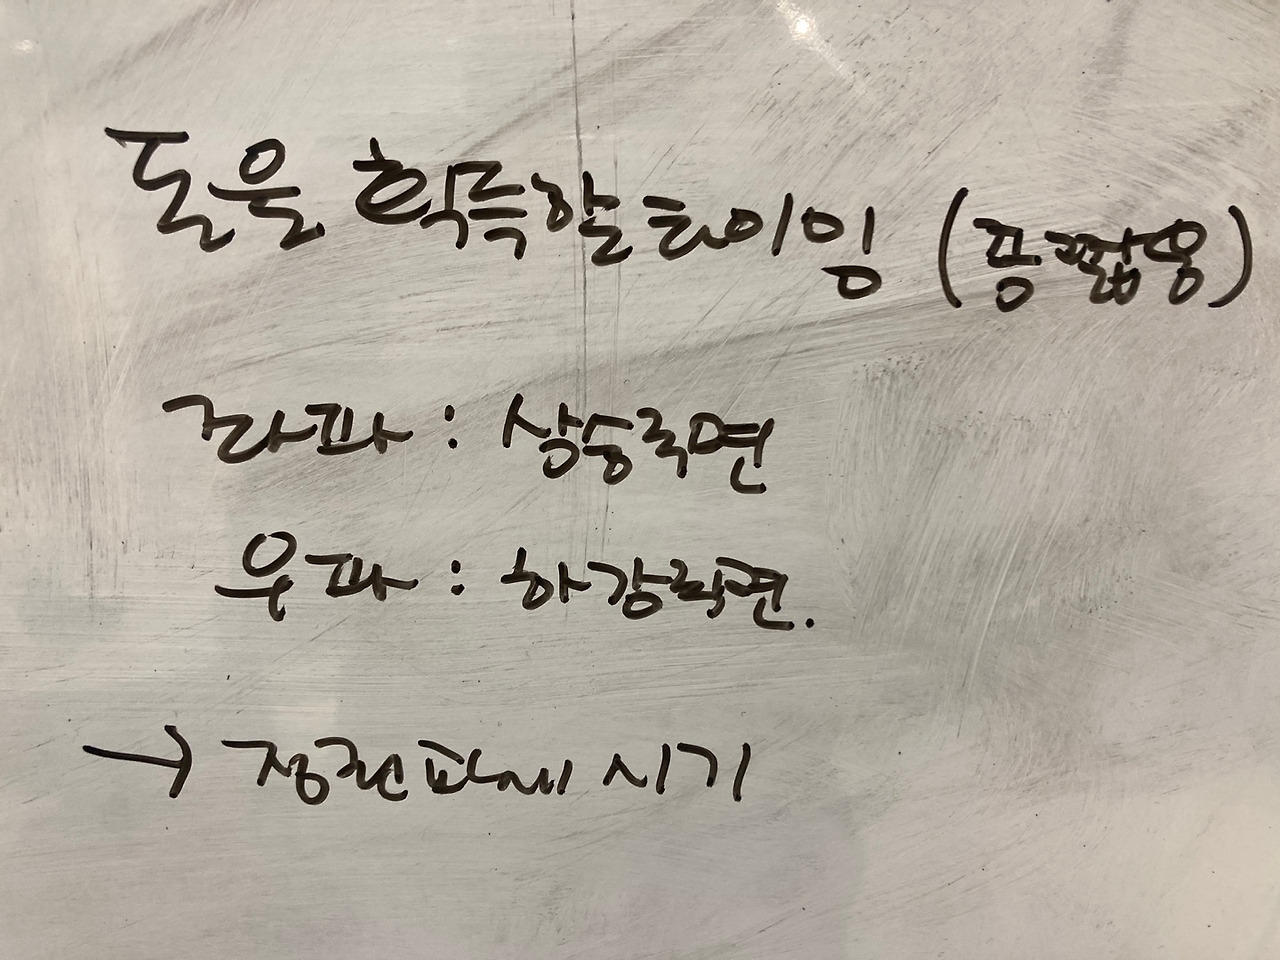 도움 획득할 타이밍 (종찝용)
좌파 : 상승국면
우파 : 하강국면.
→ 정권교체 시기